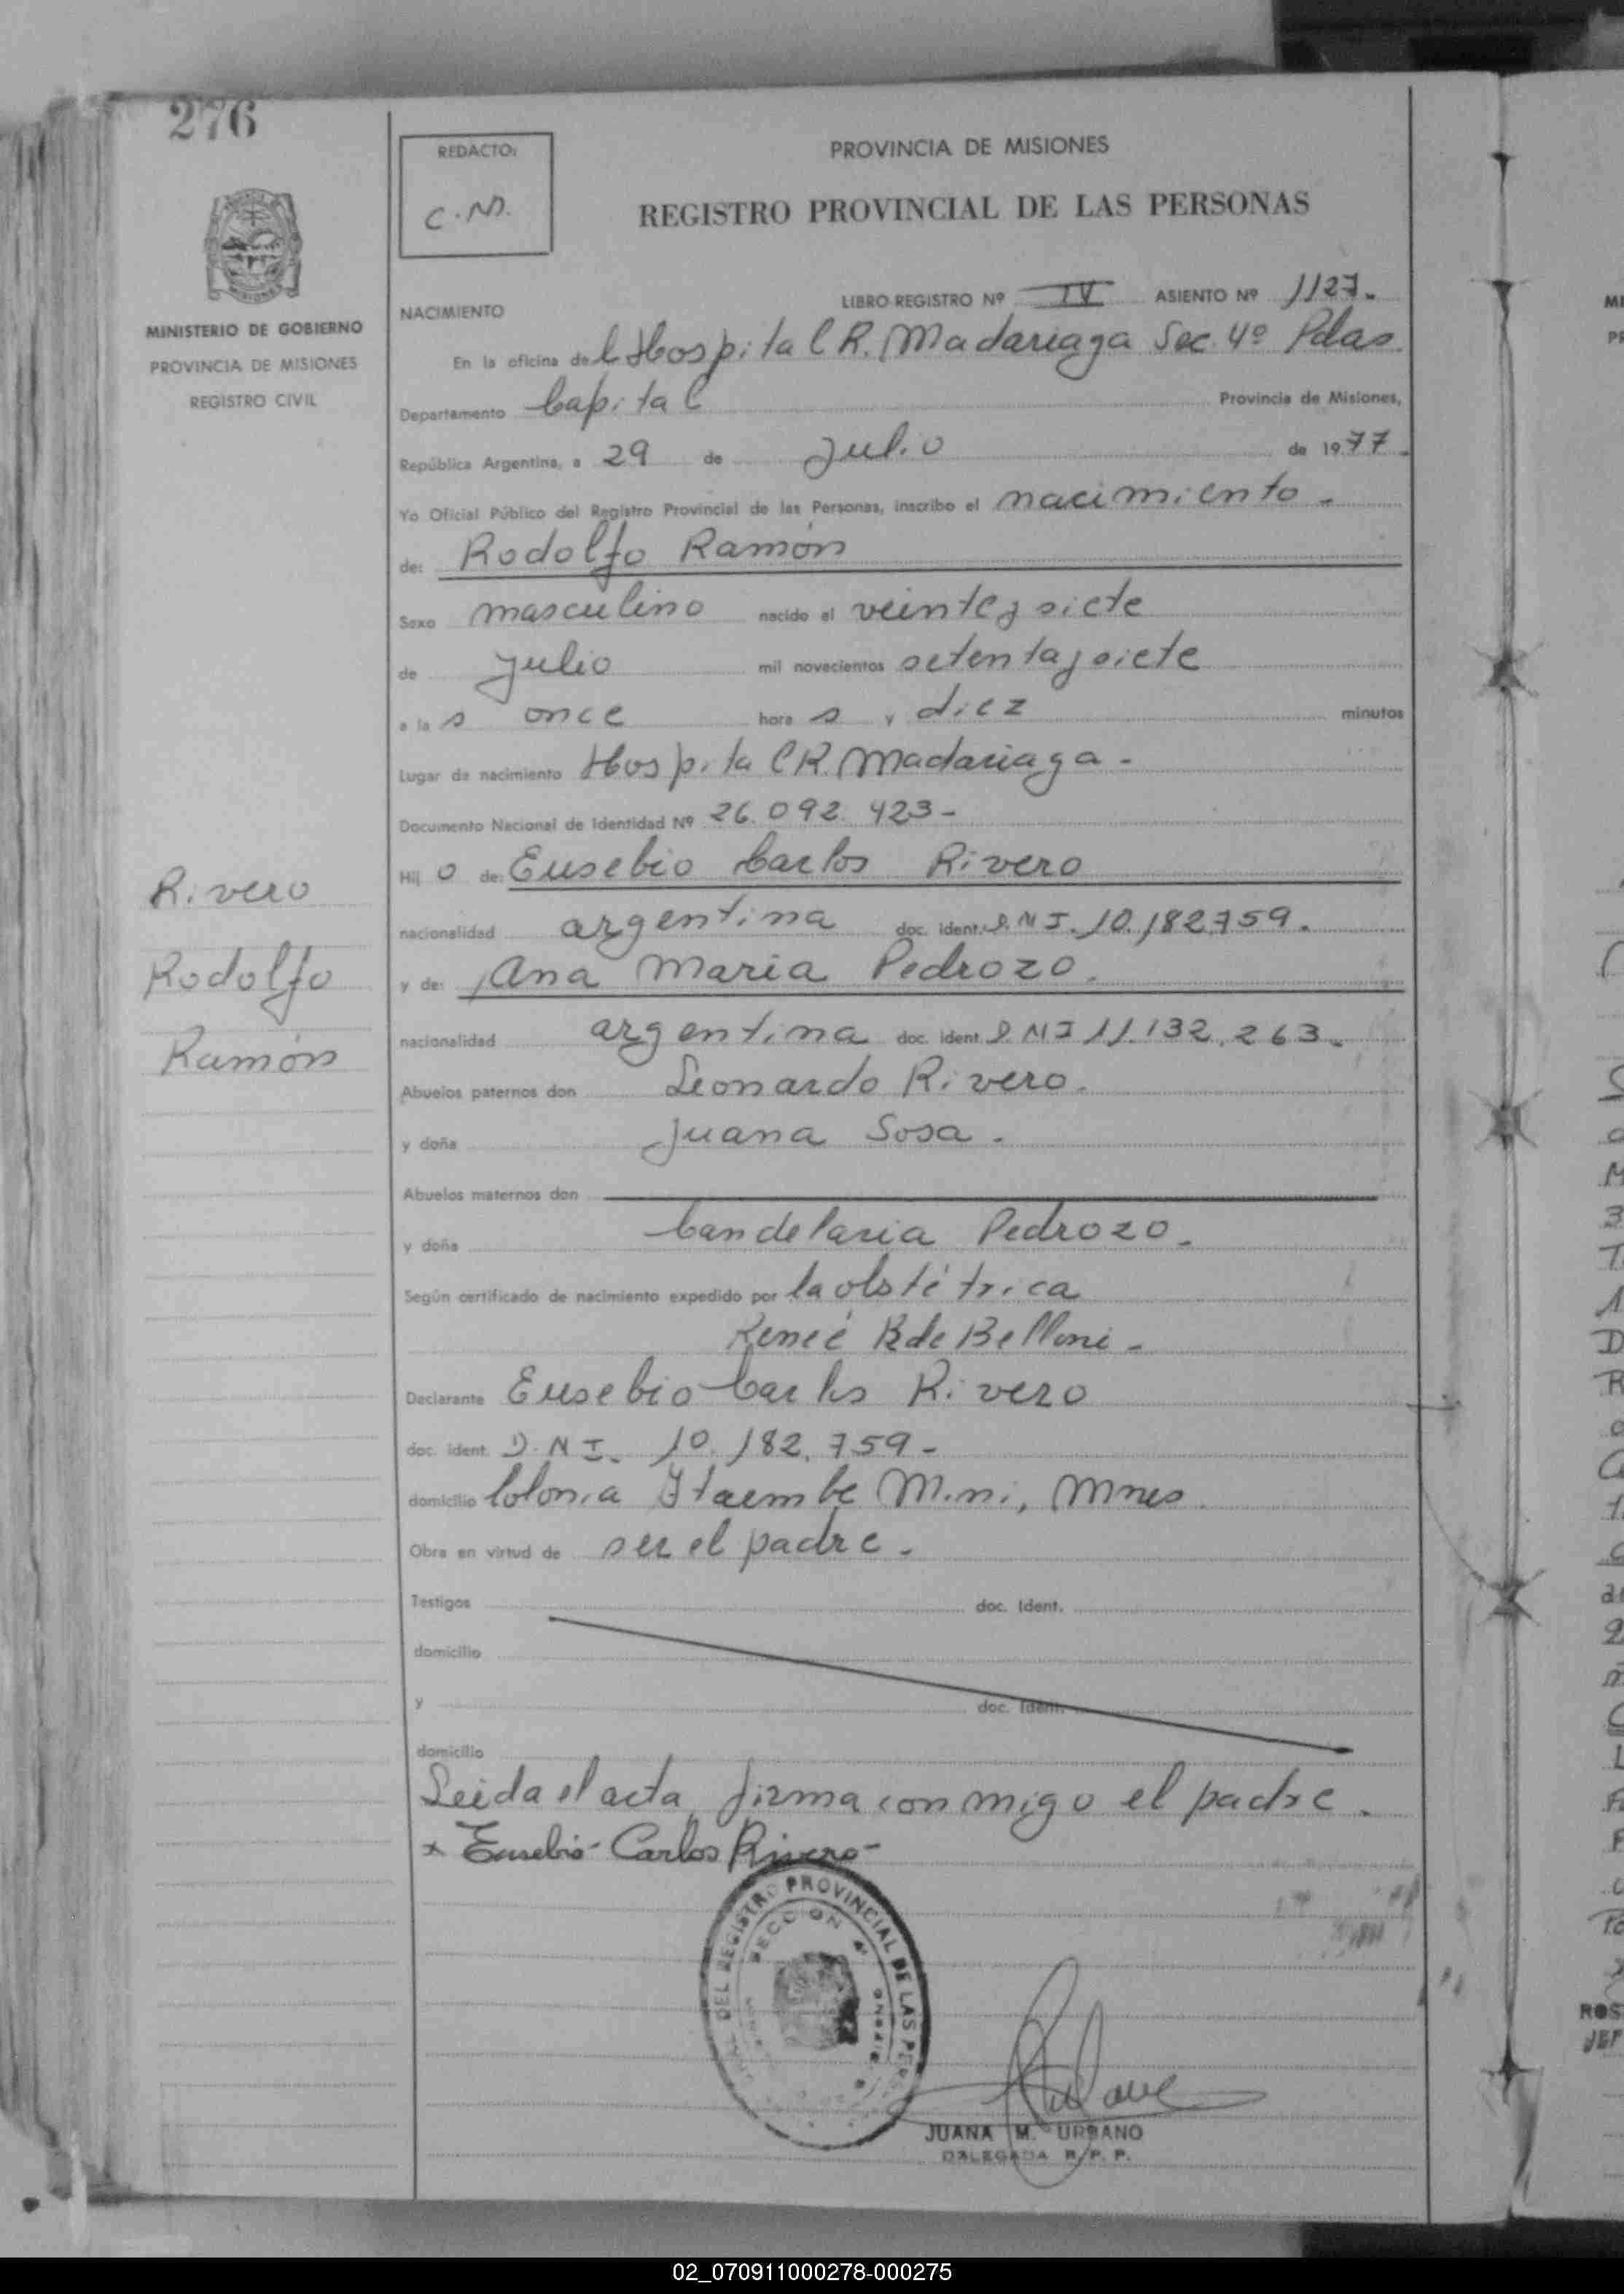 276
REDACTO:
C.M.
PROVINCIA DE MISIONES
REGISTRO PROVINCIAL DE LAS PERSONAS
MINISTERIO DE GOBIERNO
PROVINCIA DE MISIONES
REGISTRO CIVIL
NACIMIENTO
LIBRO REGISTRO Nº IV ASIENTO Nº 1127.
En la oficina del Hospital R. Madariaga Sec. 4º Pdas
Departamento Capital Provincia de Misiones,
República Argentina, a 29 de Julio de 1977.
Yo Oficial Público del Registro Provincial de las Personas, inscribo el nacimiento.
de: Rodolfo Ramón
Sexo masculino nacido el veintey siete
de Julio mil novecientos setentay siete
a la s once hora s y diez minutos
Lugar de nacimiento Hospital R. Madariaga.
Documento Nacional de Identidad Nº 26.092.423-
Hij o de: Eusebio Carlos Rivero
nacionalidad argentina doc. ident. D.N.I. 10.182.759.
y de: Ana Maria Pedrozo.
nacionalidad argentina doc. ident D.N.I 11.132.263.
Abuelos paternos don Leonardo Rivero.
y doña Juana Sosa.
Abuelos maternos don
y doña Candelaria Pedrozo.
Según certificado de nacimiento expedido por la obstétrica
Reneé B de Belloni.
Declarante Eusebio Carlos Rivero
doc. ident. D.N.I. 10.182.759-
domicilio Colonia Itaembe Mini, Mnes.
Obra en virtud de ser el padre.
Testigos doc. Ident.
domicilio
y doc. Ident.
domicilio
Leida el acta firma conmigo el padre.
x Eusebio Carlos Rivero-
Rivero
Rodolfo
Ramón
DEL REGISTRO PROVINCIAL DE LAS
SECCION 4ª
JUANA M. URBANO
DELEGADA R. P. P.
ROS
JEF
02_070911000278-000275